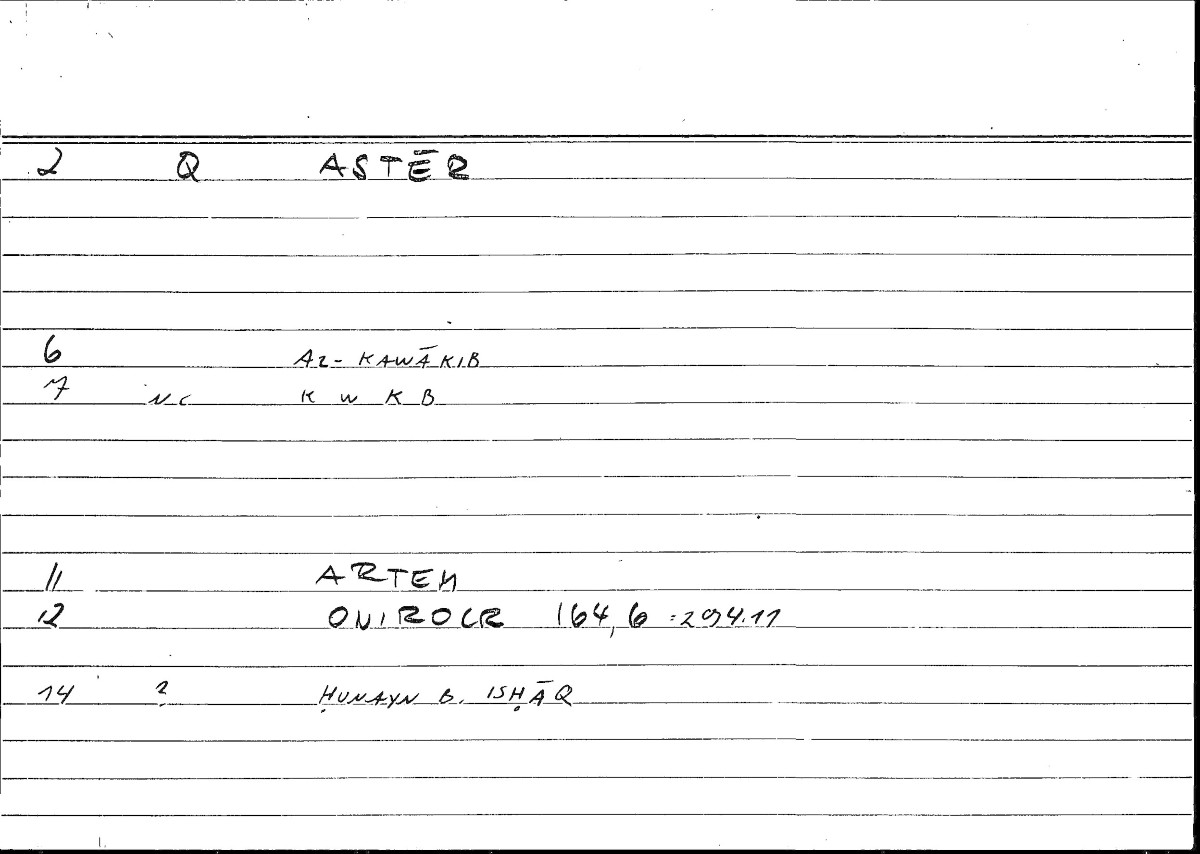 2 Q ASTĒR
6 AL- KAWĀKIB
7 NC K W K B
11 ARTEM
12 ONIROCR 164,6 = 294.11
14 ? ḤUNAYN B. ISḤĀQ